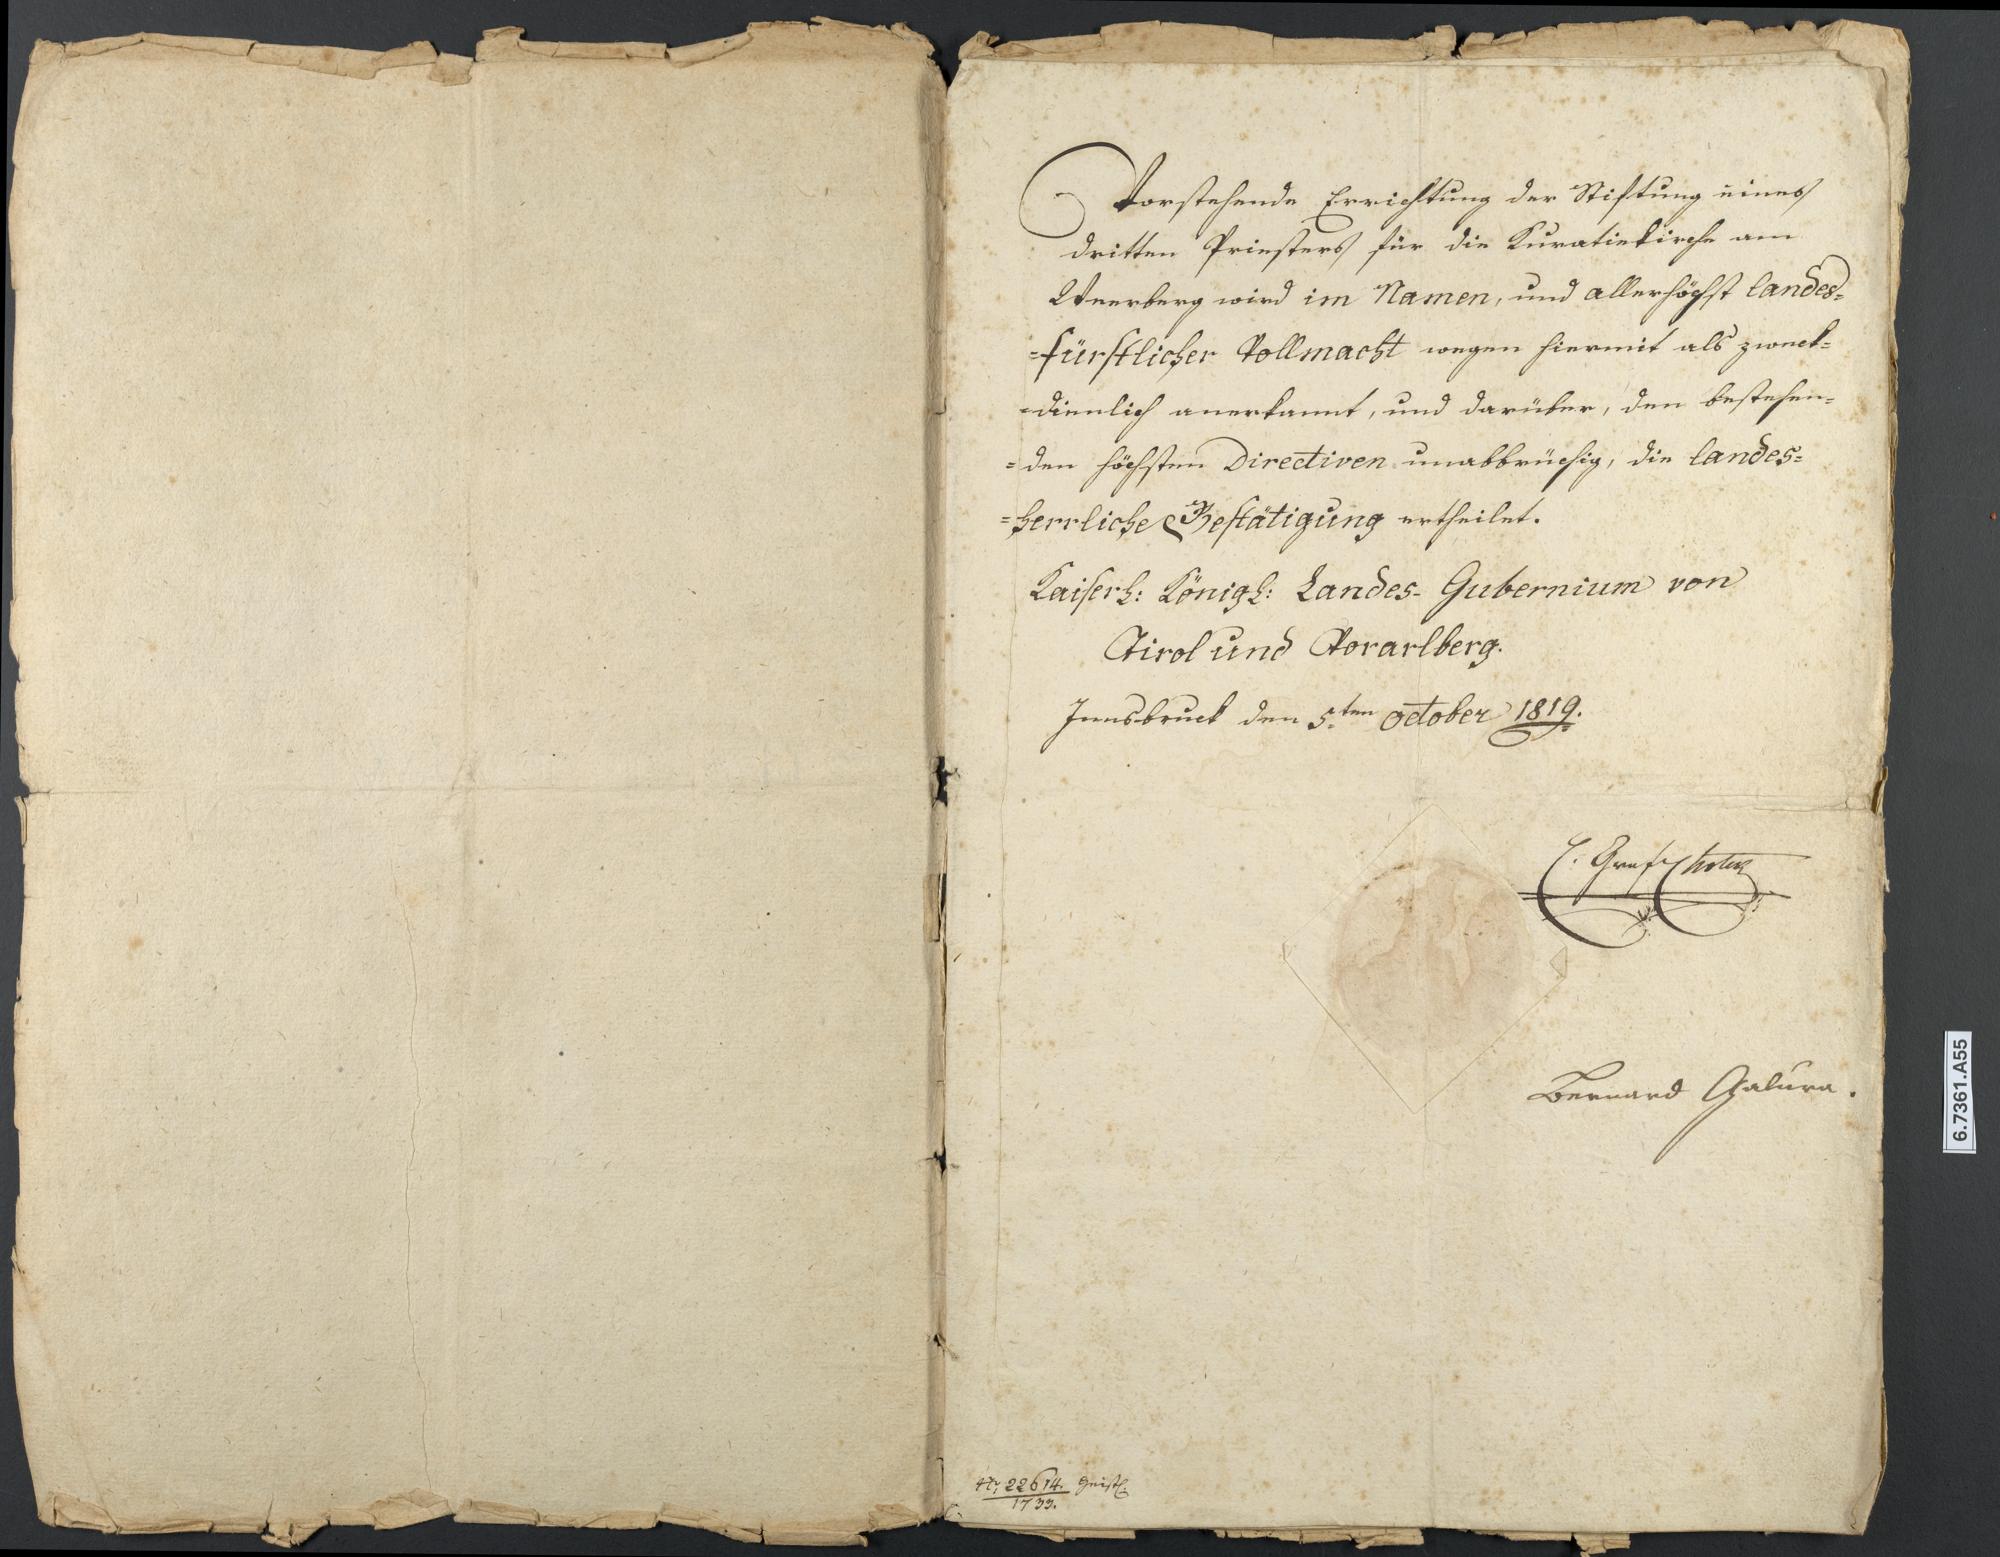 Vorstehende Errichtung der Stiftung eines
dritten Priesters für die Kuratiekirche am
Weerberg wird im Namen, und allerhöchst landes=
=fürstlicher Vollmacht wegen hiermit als zweck=
=dienlich anerkannt, und darüber, den bestehen=
=den höchsten Directiven unabbrüchig, die landes=
=herrliche Bestätigung ertheilet.
Kaiserl: Königl: Landes- Gubernium von
Tirol und Vorarlberg.
Innsbruck den 5ten October 1819.
C. Graf Chotek
Bernard Galura.
Nr. 22614. Geistl.
1733.
6.7361.A55